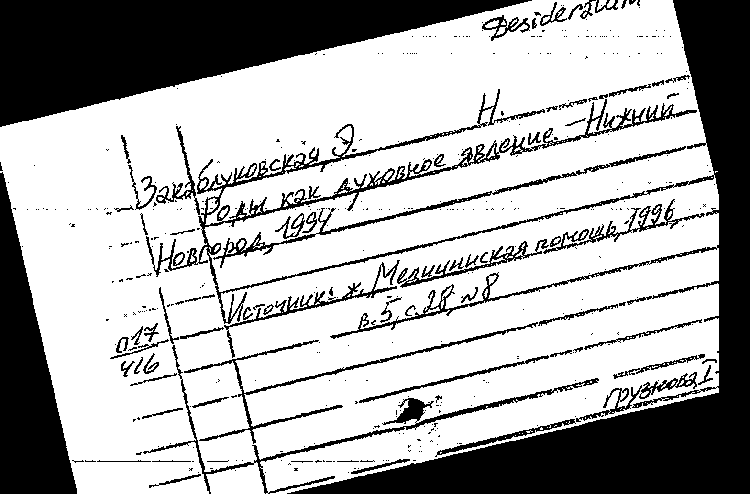 Desideratum
Закаблуковская, Э. Н.
Роды как духовное явление. – Нижний
Новгород, 1994
Источник: ж. Медицинская помощь, 1996,
в. 5, с. 28, №8
п17
416
Грузнова Г